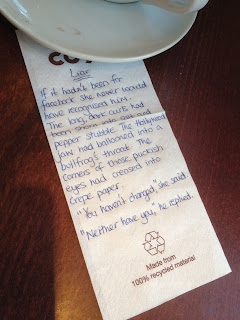 CO
Liar
If it hadn't been for
facebook she never would
have recognised him.
The long, dark curls had
been shorn into salt and
pepper stubble. The Hollywood
jaw had ballooned into a
bullfrog's throat. The
corners of those puckish
eyes had creased into
crepe paper.
"You haven't changed," she said.
"Neither have you," he replied.
Made from
100% recycled material